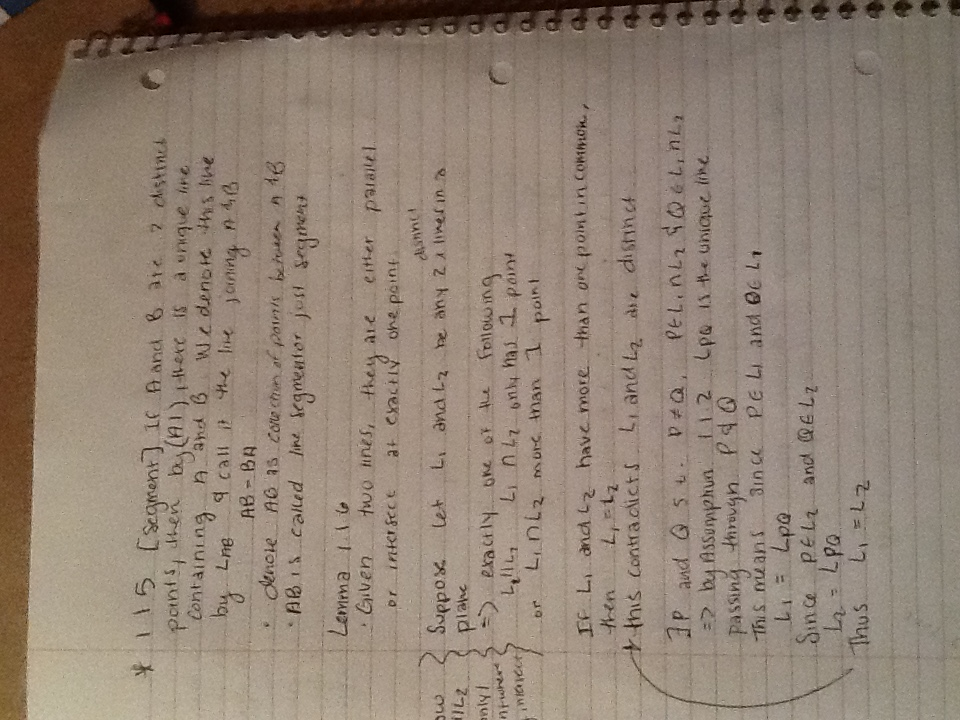 * 1.1.5 [Segment] If A and B are 2 distinct
points, then by (A1), there is a unique line
containing A and B. We denote this line
by LAB & call it the line joining A & B
AB = BA
• denote AB as collection of points between A & B
• AB is called line segment or just segment
Lemma 1.1.6
• Given two lines, they are either parallel
or intersect at exactly one point.
distinct
Suppose let L1 and L2 be any 2 lines in a
plane
=> exactly one of the following
L1||L2 L1 ∩ L2 only has 1 point
or L1 ∩ L2 more than 1 point
only 1
intersect
If L1 and L2 have more than one point in common,
then L1 = L2
* this contradicts L1 and L2 are distinct
∃ P and Q s.t. P ≠ Q, P ∈ L1 ∩ L2 & Q ∈ L1 ∩ L2
=> by Assumption 1.1.2 LPQ is the unique line
passing through P & Q
This means since P ∈ L1 and Q ∈ L1
L1 = LPQ
Since P ∈ L2 and Q ∈ L2
L2 = LPQ
Thus L1 = L2